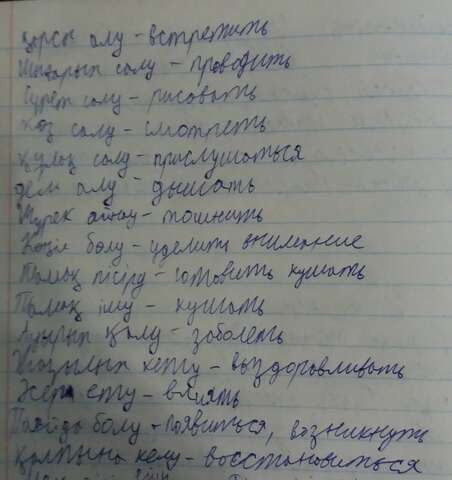 қарсы алу - встретить
Шығарып салу - проводить
Сурет салу - рисовать
Көз салу - смотреть
Құлақ салу - прислушаться
дем алу - дышать
Жүрек айну - тошнить
Көңіл бөлу - уделить внимание
Тамақ пісіру - готовить кушать
Тамақ ішу - кушать
Ауырып қалу - заболеть
Жазылып кету - выздоравливать
Әсер ету - влиять
Пайда болу - появиться, возникнуть
Қалпына келу - восстановиться